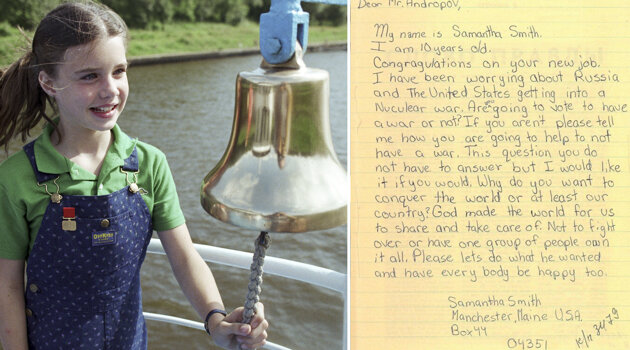 Dear Mr. Andropov,
My name is Samantha Smith.
I am 10 years old.
Congratulations on your new job.
I have been worrying about Russia
and The United States getting into a
Nuculear war. Are going to vote to have
a war or not? If you aren't please tell
me how you are going to help to not
have a war. This question you do
not have to answer but I would like
it if you would. Why do you want to
conquer the world or at least our
country? God made the world for us
to share and take care of. Not to fight
over or have one group of people own
it all. Please lets do what he wanted
and have every body be happy too.
Samantha Smith
Manchester, Maine U.S.A.
Box 44
04351
OshKosh